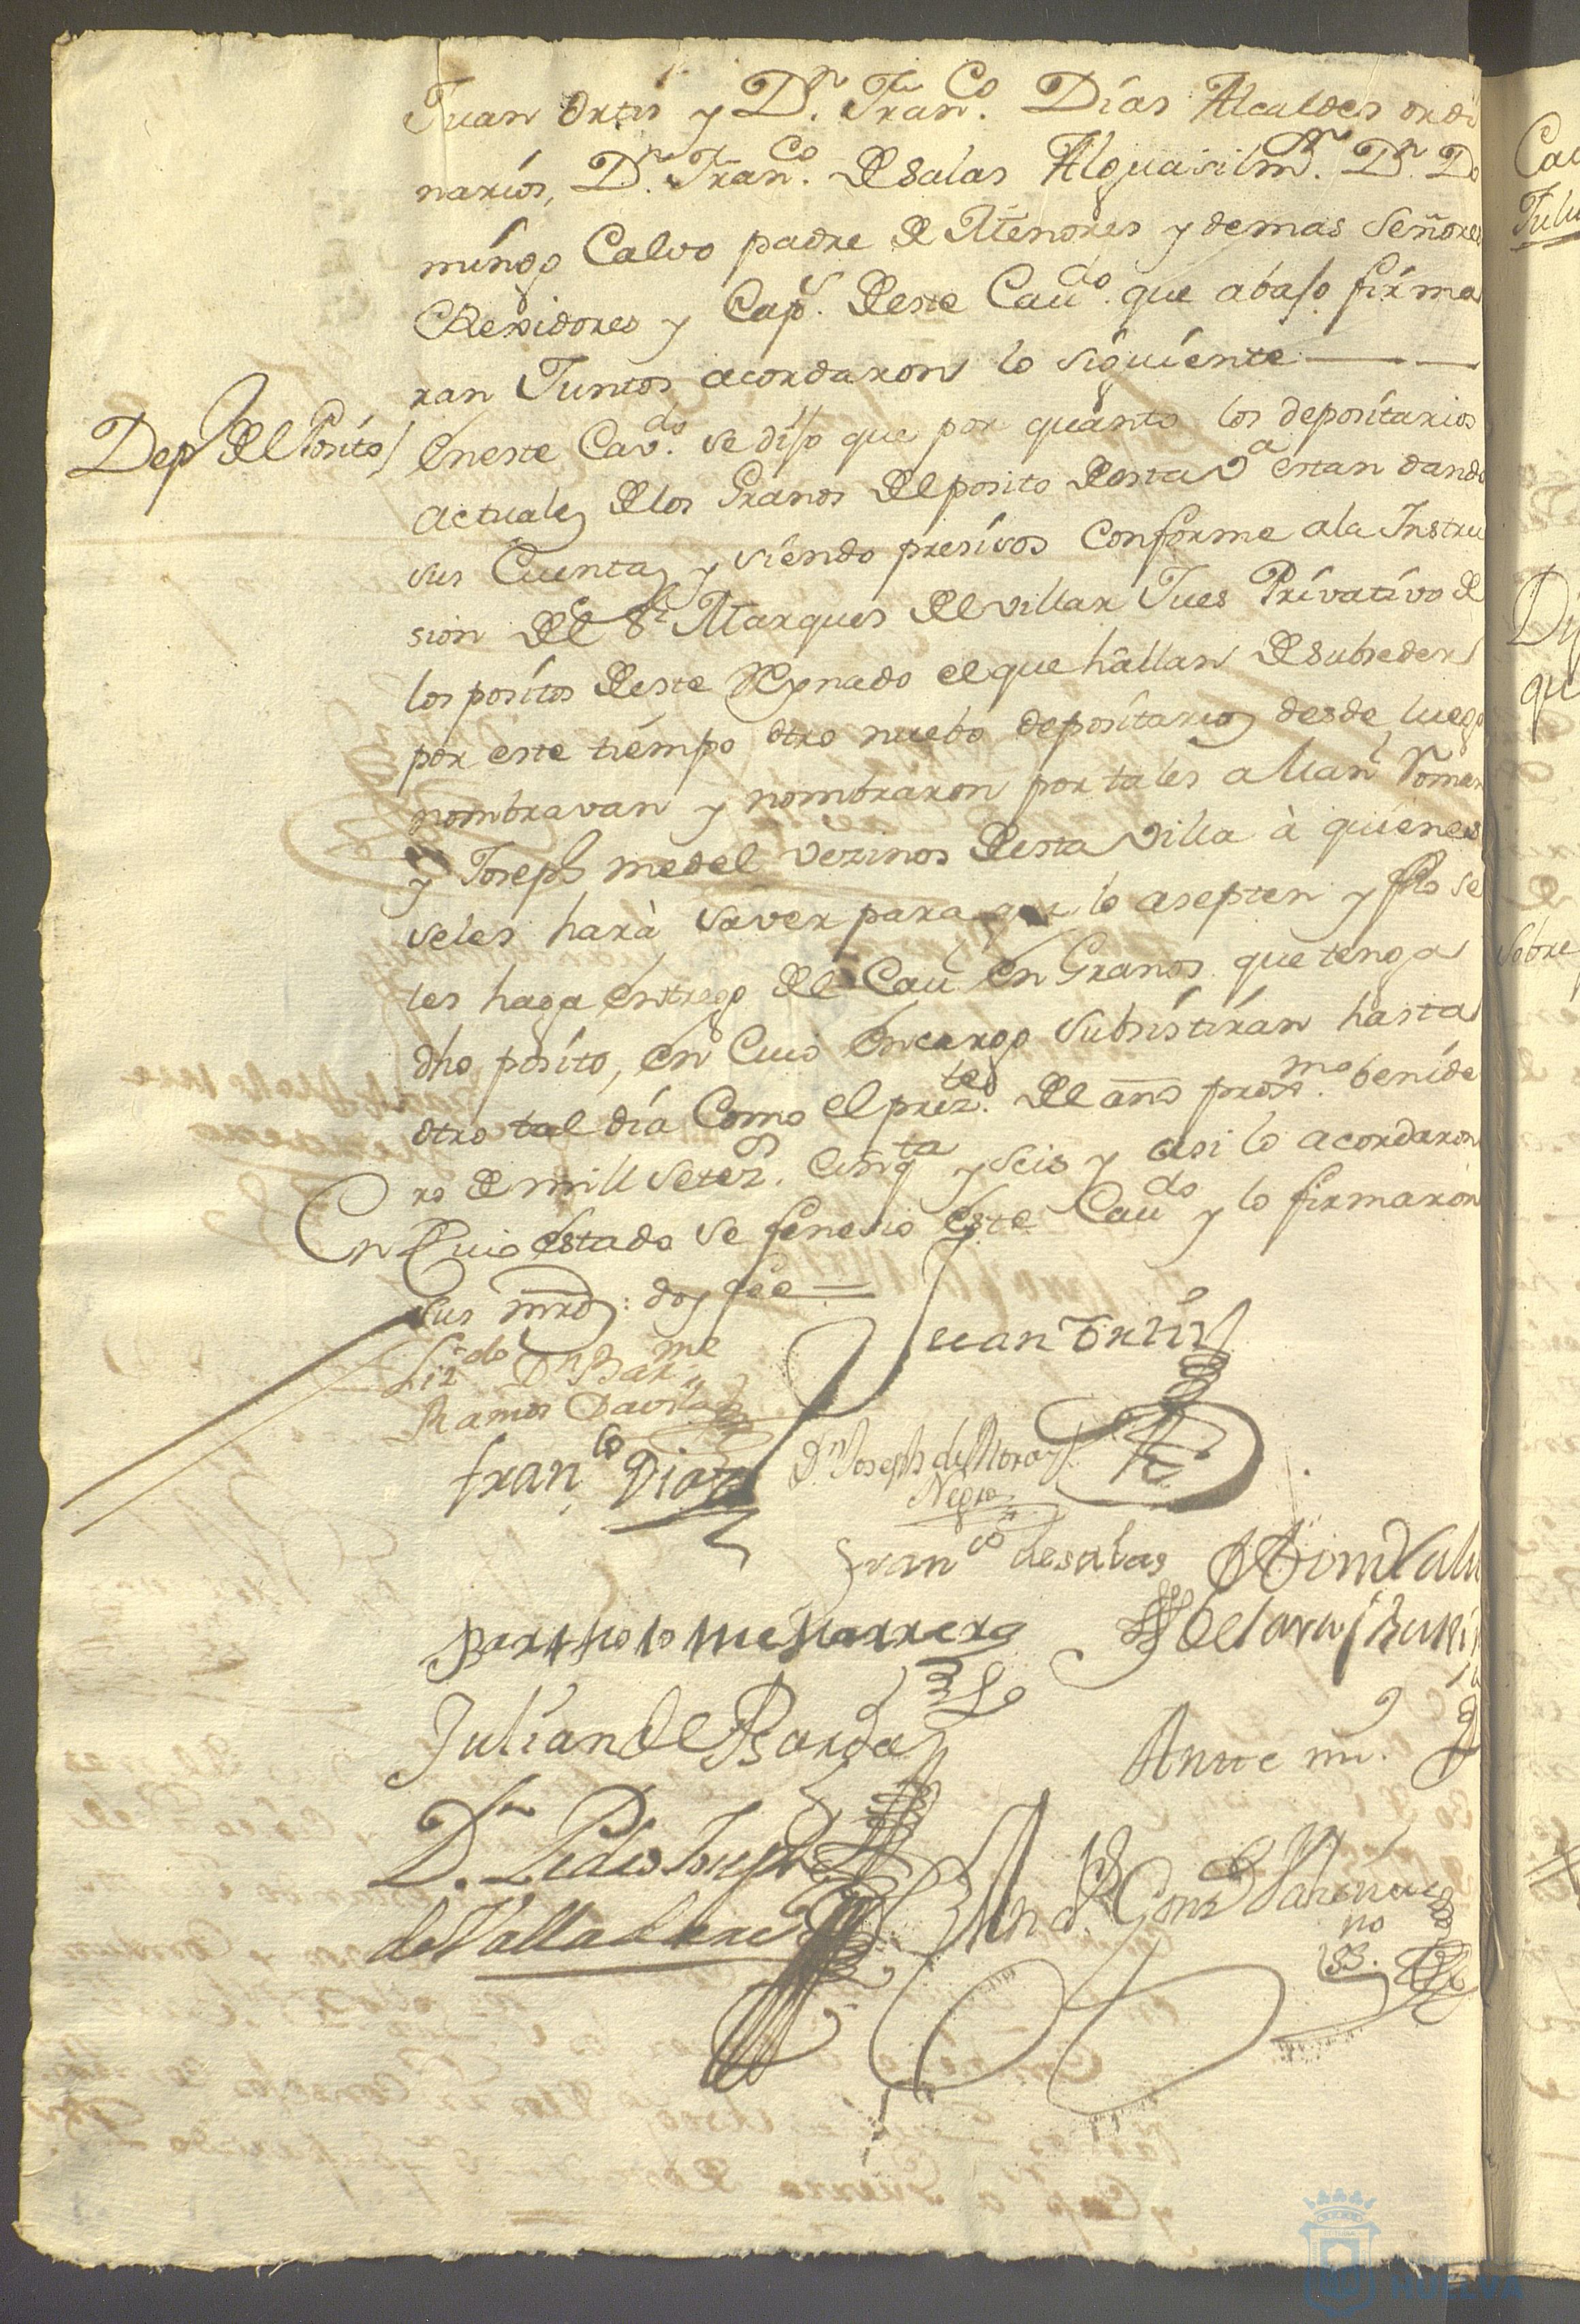 Juan Ortis y Dn. Franco. Días Alcaldes ordi
narios, Dn. Franco. de Salas Alguasil mr. Dn. Do
mingo Calvo padre de Menores y demas Señores
Rexidores y Caps. deste Caudo. que abajo firma
ran Juntos acordaron lo siguiente
Dep del Posito
en este Cavdo. se dijo que por quanto los depositarios
actuales de los Granos del posito desta Va estan dando
sus Cuentas y siendo presisos Conforme a la Instru
sion del Sr. Marques del Villar Jues Privativo de
los positos deste Reynado el que hallan de subseder
por este tiempo otro nuebo depositarios desde luego
nombravan y nombraron por tales a
y Joseph medel vezinos desta Villa à quienes
seles harà saver para que lo asepten y se
les haga entrego del Cau en Granos que tenga
dho posito, en Cuio encargo subsistiràn hasta
otro tal día Como el prezte. de año proxmo. benide
ro de mill setezs. Cinqta y seis y asi lo acordaron
En Cuio estado se fenesio este Caudo y lo firmaron
sus mrds: doy fee
Juan Ortis
Lizdo Dn Barme
Ramos Davila
Franco Diaz
Dn Joseph de Mora
Negro
Franco desalas
Domo Calvo
Bartholome Marrero
Julian de Barda
Ante mi.
Dn. Pedro Joseph
de Valladares
HUELVA